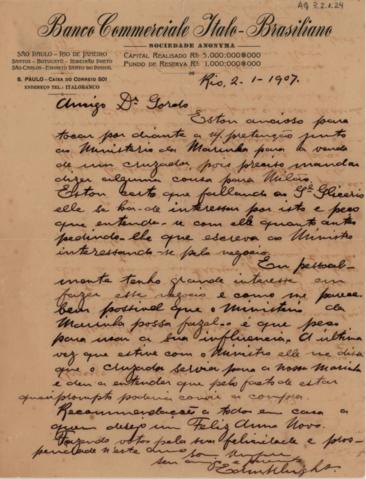 AG 3.2.1.24
Banco Commerciale Italo-Brasiliano
SOCIEDADE ANONYMA
SÃO PAULO - RIO DE JANEIRO
SANTOS - BOTUCATU - RIBEIRÃO PRETO
SÃO CARLOS - ESPIRITO SANTO DO PINHAL
CAPITAL REALISADO RS 5.000:000$000
FUNDO DE RESERVA RS 1.000:000$000
S. PAULO - CAIXA DO CORREIO 501
ENDEREÇO TEL.: ITALOBANCO
Rio, 2-1-1907.
Amigo Dr
Estou ancioso para
tocar por diante a pretenção junto
ao Ministerio da Marinha para a venda
de um cruzador, pois preciso mandar
dizer alguma cousa para Milão.
Estou certo que fallando ao Gal Glicerio
elle se ha-de interessar por isto e peço
que entenda-se com elle quanto antes
pedindo-lhe que escreva ao Ministro
interessando-se pelo negocio.
Eu pessoal-
mente tenho grande interesse em
fazer esse negocio e como me parece
bem possivel que o Ministerio da
Marinha possa fazel-o é que peço
para usar a sua influencia. A ultima
vez que estive com o Ministro elle me disse
que o cruzador servia para a nossa Marinha
e deu a entender que pelo facto de estar
quasi prompto poderia convir a compra.
Recommendações a todos em casa a
quem desejo um Feliz Anno Novo.
Fazendo votos pela sua felicidade e pros-
peridade n'este anno sou sempre
seu am